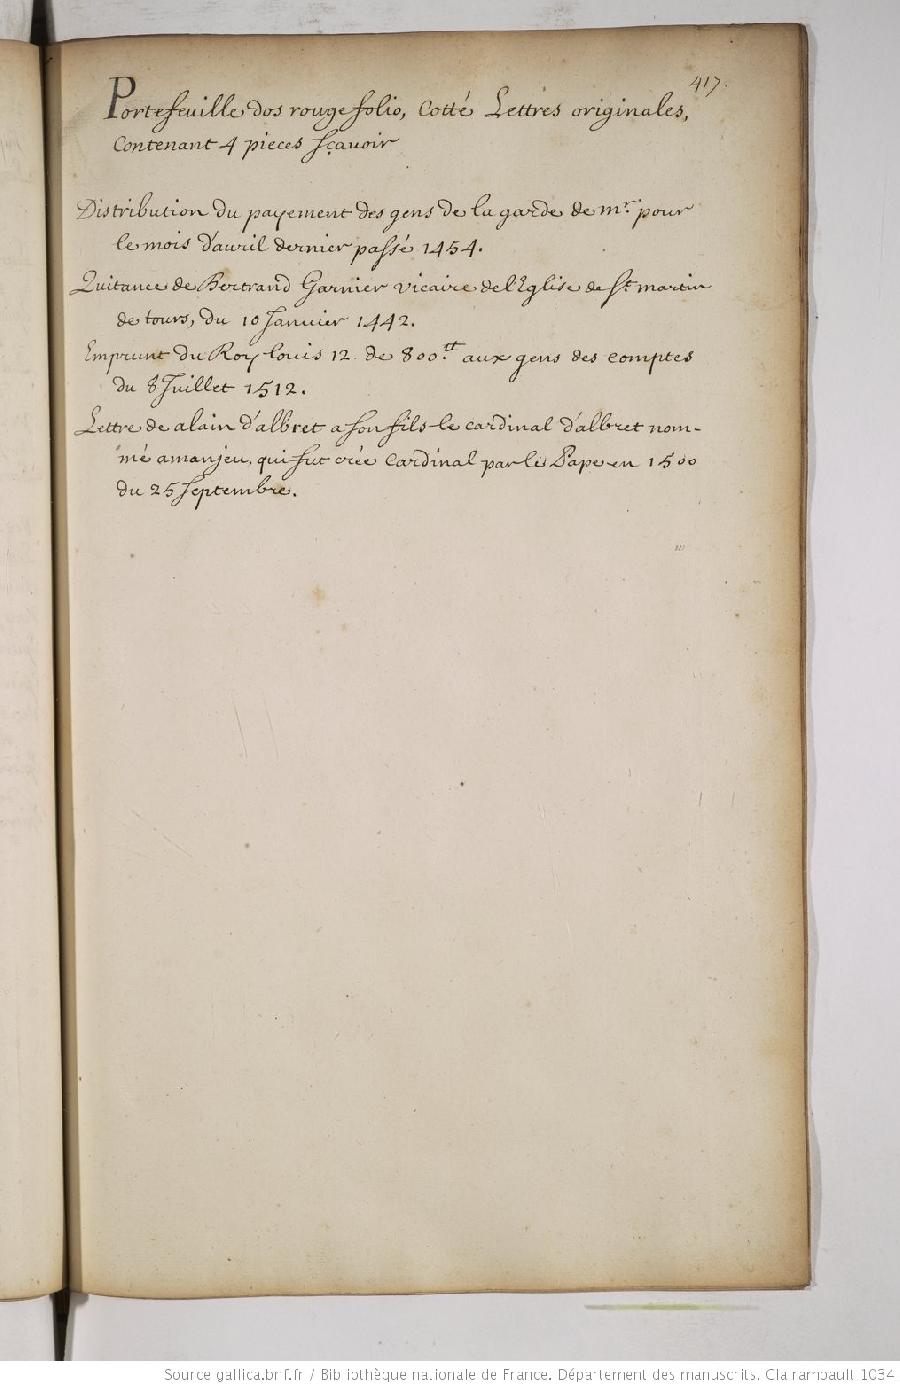 417.
Portefeuille dos rouge folio, Cotté Lettres originales,
Contenant 4 pieces sçavoir
Distribution du payement des gens de la garde de mr. pour
le mois d'avril dernier passé 1454.
Quitance de Bertrand Garnier vicaire de l'Eglise de St. martin
de tours, du 10 Janvier 1442.
Emprunt du Roy louis 12. de 800.tt aux gens des comptes
du 8 Juillet 1512.
Lettre de alain d'albret a son fils le cardinal d'albret nom-
mé amanjeu, qui fut crée Cardinal par le Pape en 1500
du 25 septembre.
Source gallica.bnf.fr / Bibliothèque nationale de France. Département des manuscrits. Clairambault 1034